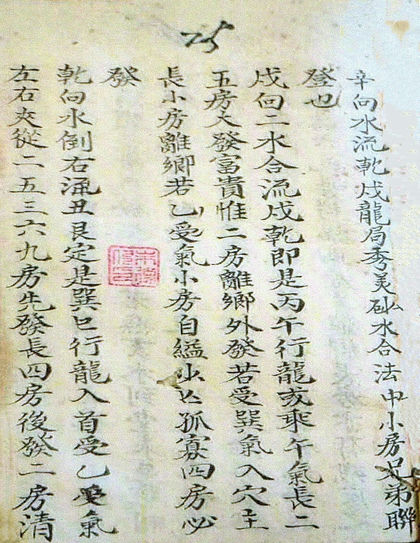 25
辛向水流乾戌龍局秀美砂水合法中小房兄弟聯
登也
戌向二水合流戌乾即是丙午行龍或乘午氣長二
五房大發富貴惟二房離鄉外發若受巽氣入穴主
長小房離鄉若乙受氣小房自縊少亾孤寡四房必
發
乾向水倒右流丑艮定是巽巳行龍入首受乙氣
左右夾從二五三六九房先發長四房後發二房清